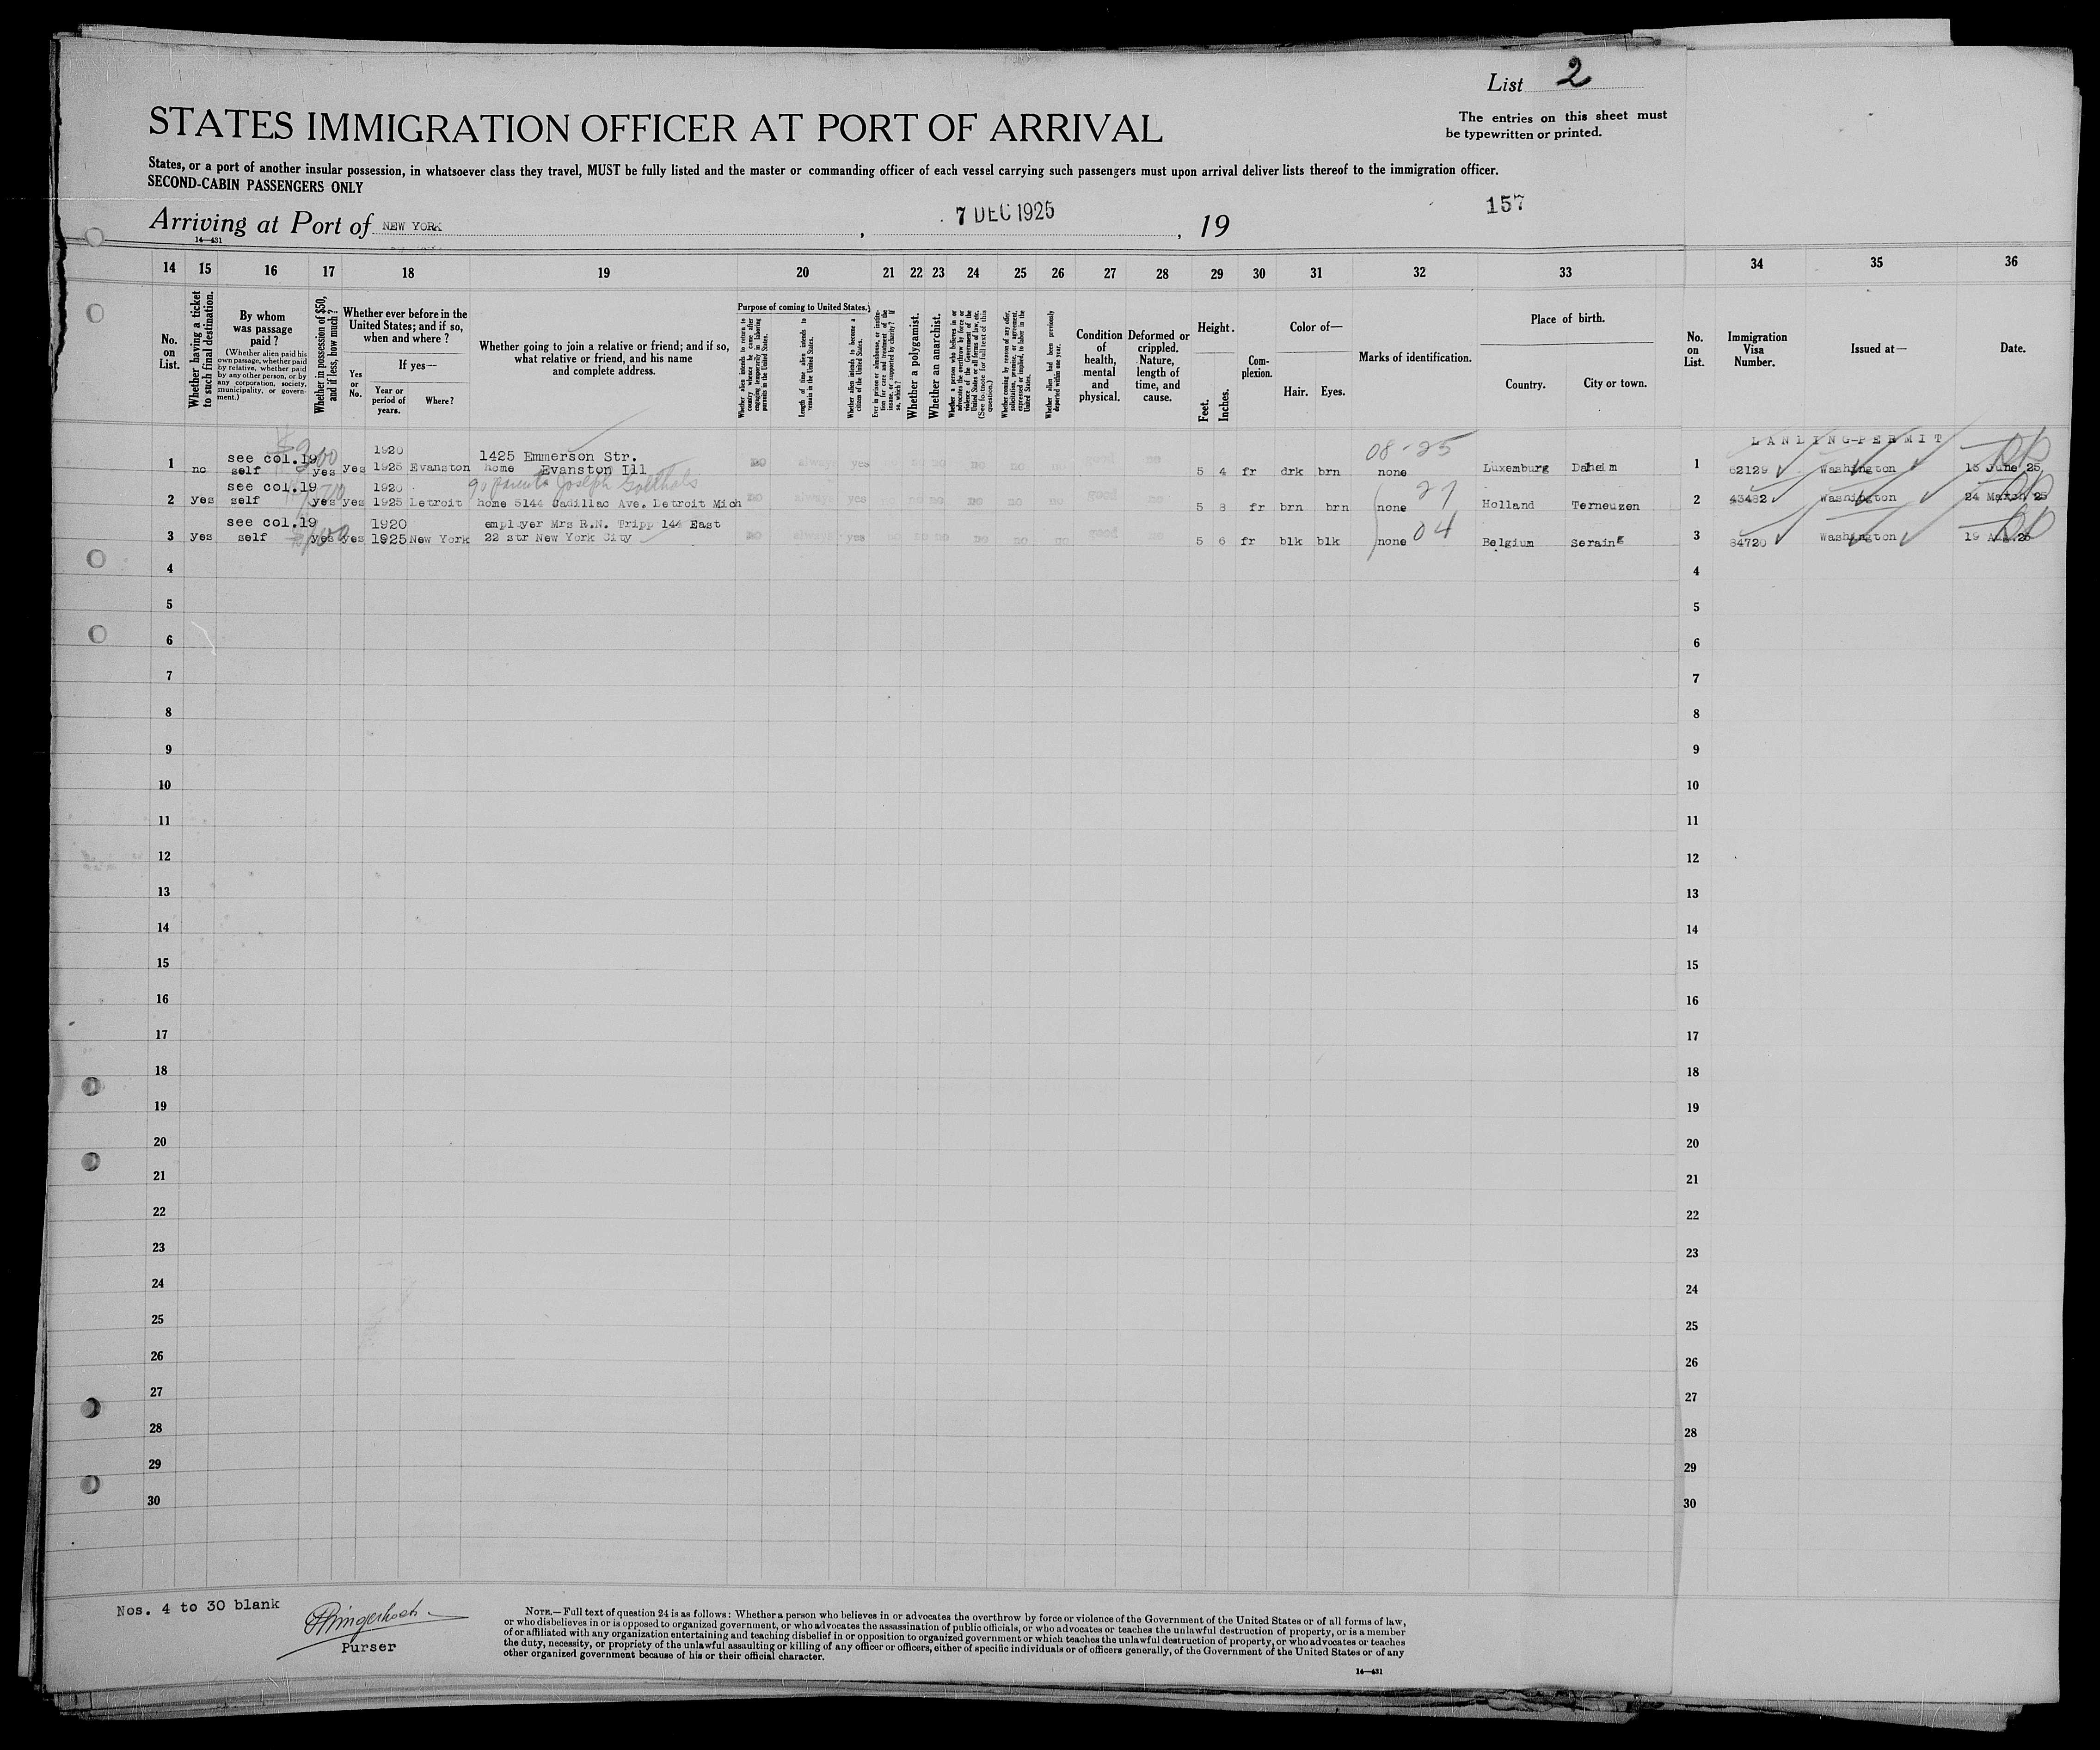 List 2
STATES IMMIGRATION OFFICER AT PORT OF ARRIVAL
The entries on this sheet must
be typewritten or printed.
States, or a port of another insular possession, in whatsoever class they travel, MUST be fully listed and the master or commanding officer of each vessel carrying such passengers must upon arrival deliver lists thereof to the immigration officer.
SECOND-CABIN PASSENGERS ONLY
Arriving at Port of NEW YORK, 7 DEC 1925, 19
157
14—431
14 15 16 17 18 19 20 21 22 23 24 25 26 27 28 29 30 31 32 33 34 35 36
No. on List.
Whether having a ticket to such final destination.
By whom was passage paid?
(Whether alien paid his own passage, whether paid by relative, whether paid by any other person, or by any corporation, society, municipality, or government.)
Whether in possession of $50, and if less, how much?
Whether ever before in the United States; and if so, when and where?
If yes—
Yes or No.
Year or period of years.
Where?
Whether going to join a relative or friend; and if so, what relative or friend, and his name and complete address.
Purpose of coming to United States.
Whether alien intends to return to country whence he came after engaging temporarily in laboring pursuits in the United States.
Length of time alien intends to remain in the United States.
Whether alien intends to become a citizen of the United States.
Ever in prison or almshouse, or institution for care and treatment of the insane, or supported by charity? If so, which?
Whether a polygamist.
Whether an anarchist.
Whether a person who believes in or advocates the overthrow by force or violence of the Government of the United States or all forms of law, etc. (See footnote for full text of this question.)
Whether coming by reason of any offer, solicitation, promise, or agreement, expressed or implied, to labor in the United States.
Whether alien had been previously deported within one year.
Condition of health, mental and physical.
Deformed or crippled. Nature, length of time, and cause.
Height.
Feet. Inches.
Complexion.
Color of—
Hair. Eyes.
Marks of identification.
Place of birth.
Country. City or town.
No. on List.
Immigration Visa Number.
Issued at—
Date.
LANDING-PERMIT
see col.19 1920 1425 Emmerson Str. 08-25
1 no self yes yes 1925 Evanston home Evanston Ill no always yes no no no no no no good no 5 4 fr drk brn none Luxemburg Daheim 1 62129 Washington 15 June 25
see col.19 1920 parents Joseph Goethals 27
2 yes self yes yes 1925 Detroit home 5144 Cadillac Ave. Detroit Mich no always yes no no no no no no good no 5 8 fr brn brn none Holland Terneuzen 2 43482 Washington 24 March 25
see col.19 1920 employer Mrs R.N. Tripp 144 East 04
3 yes self yes yes 1925 New York 22 str New York City no always yes no no no no no no good no 5 6 fr blk blk none Belgium Seraing 3 84720 Washington 19
4 4
5 5
6 6
7 7
8 8
9 9
10 10
11 11
12 12
13 13
14 14
15 15
16 16
17 17
18 18
19 19
20 20
21 21
22 22
23 23
24 24
25 25
26 26
27 27
28 28
29 29
30 30
Nos. 4 to 30 blank
Purser
NOTE.—Full text of question 24 is as follows: Whether a person who believes in or advocates the overthrow by force or violence of the Government of the United States or of all forms of law,
or who disbelieves in or is opposed to organized government, or who advocates the assassination of public officials, or who advocates or teaches the unlawful destruction of property, or is a member
of or affiliated with any organization entertaining and teaching disbelief in or opposition to organized government or which teaches the unlawful destruction of property, or who advocates or teaches
the duty, necessity, or propriety of the unlawful assaulting or killing of any officer or officers, either of specific individuals or of officers generally, of the Government of the United States or of any
other organized government because of his or their official character.
14—431